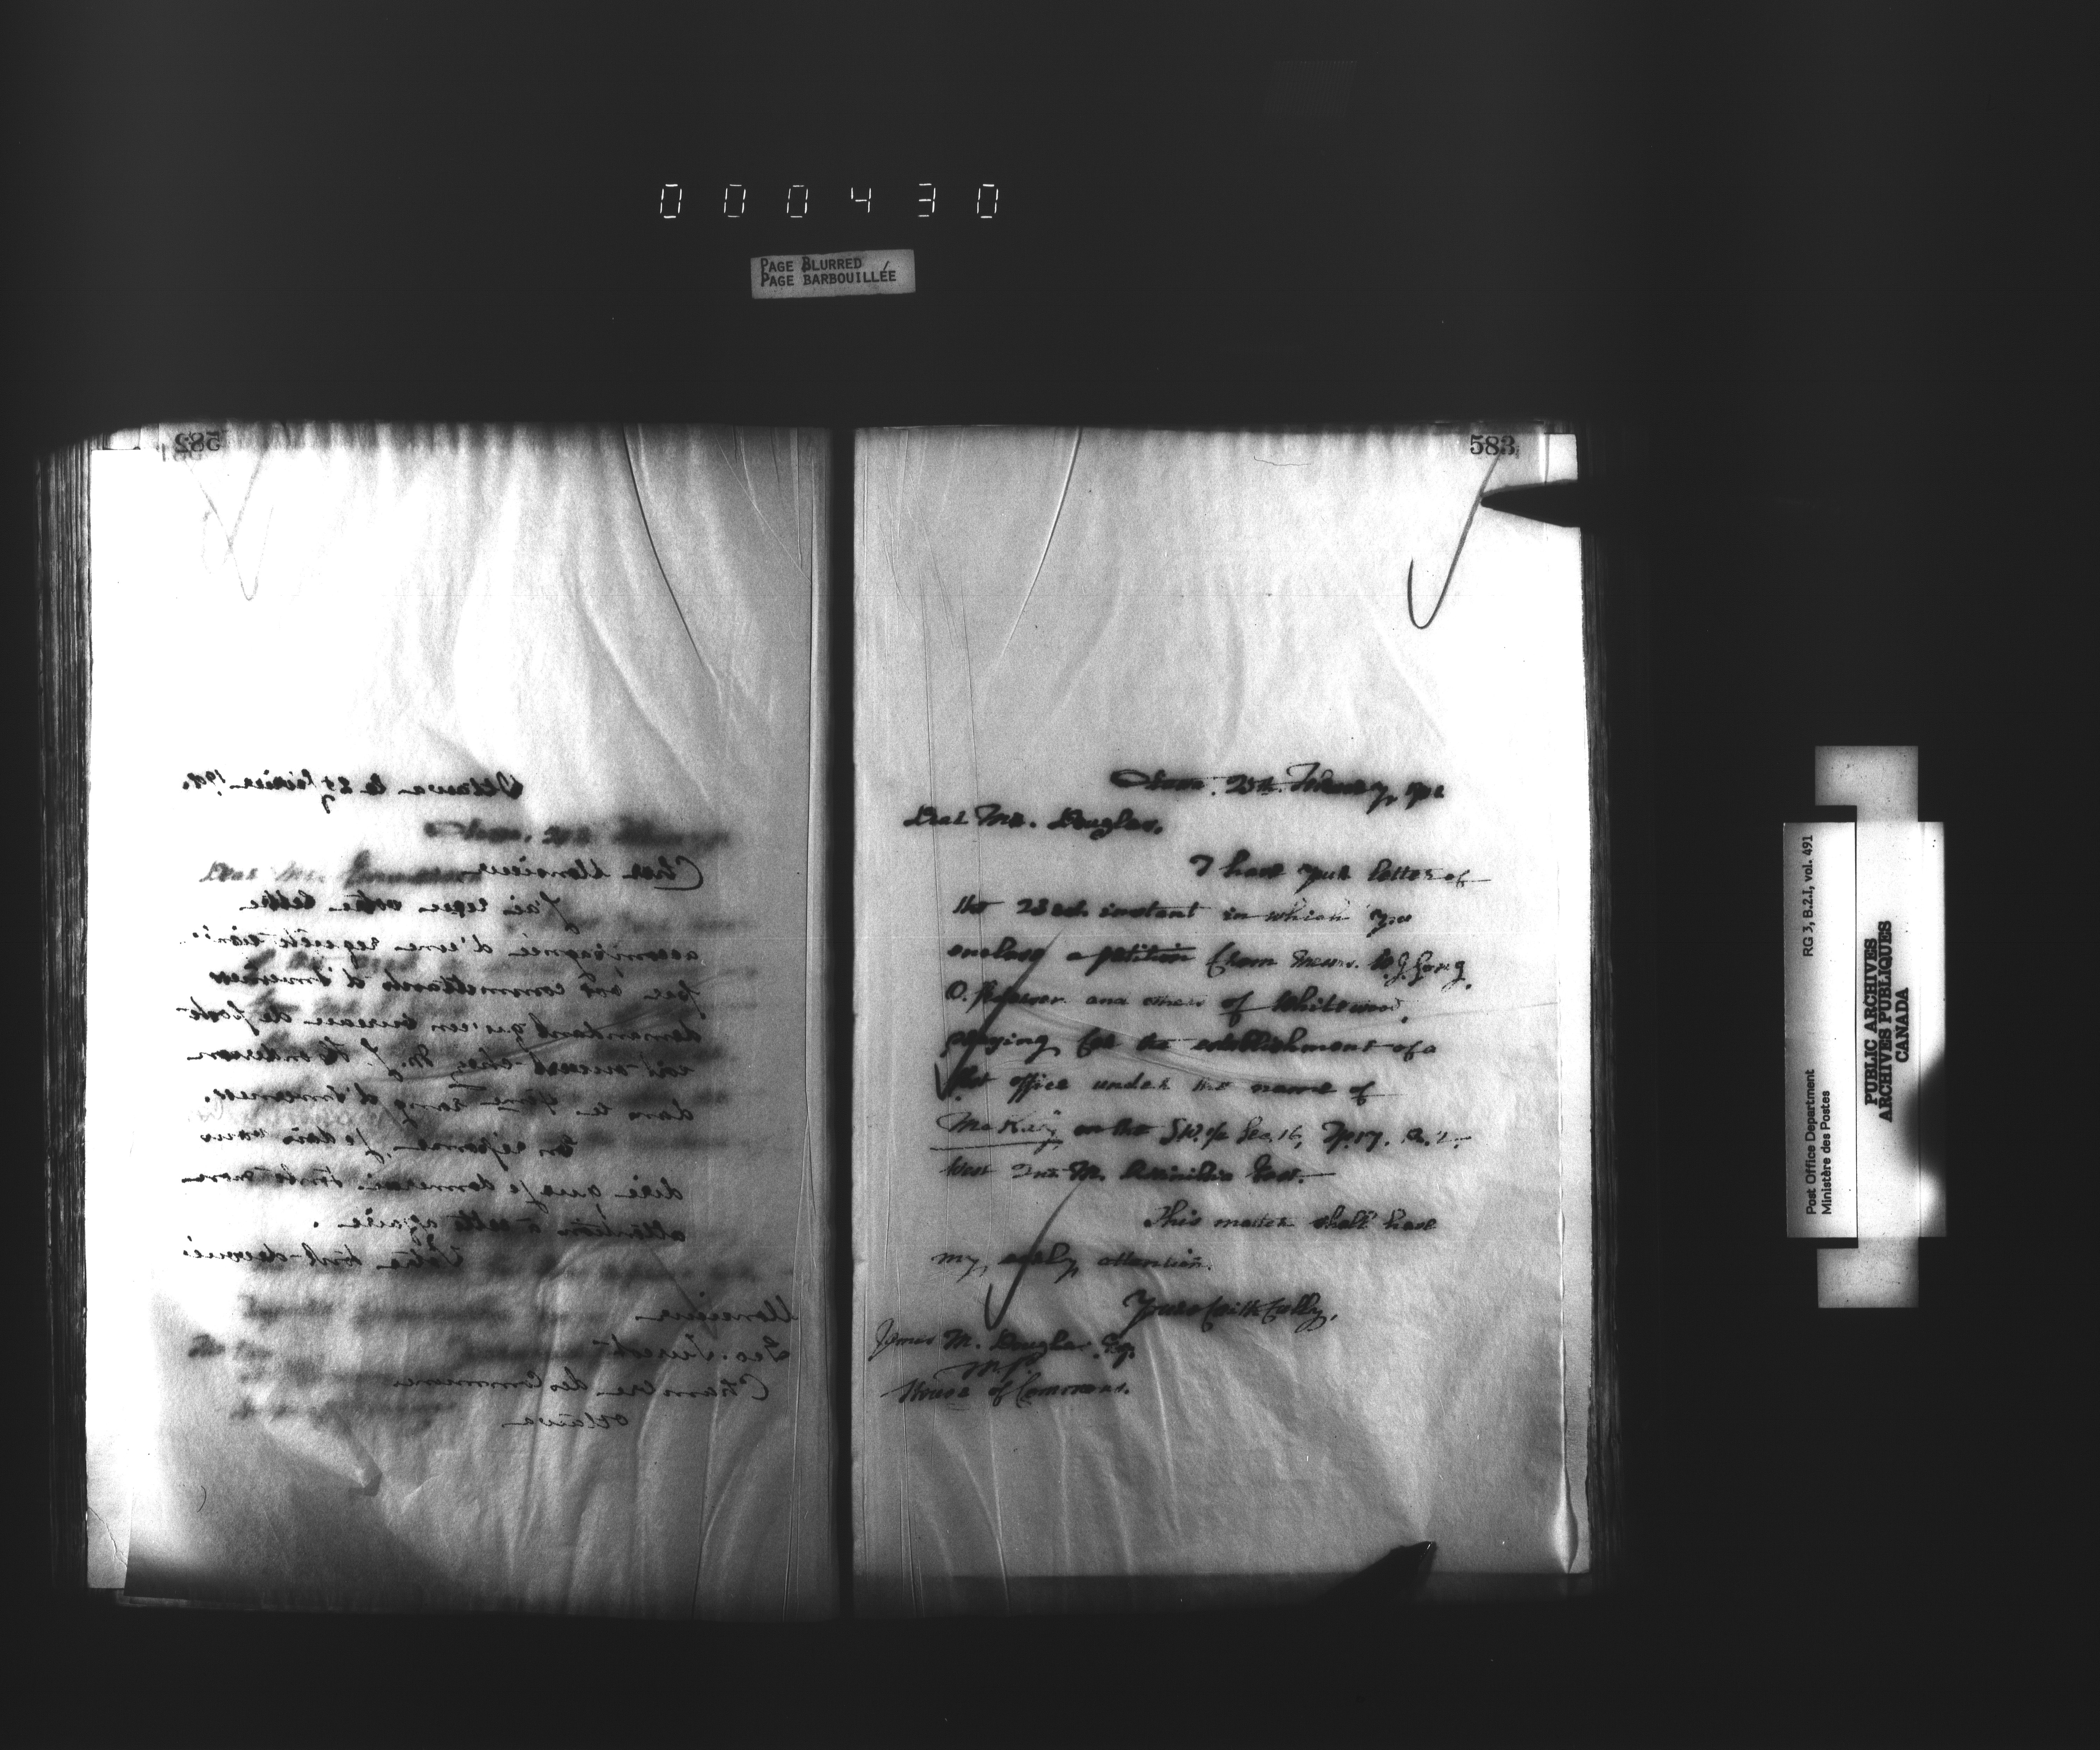 000430
PAGE BLURRED
PAGE BARBOUILLÉE
582
Ottawa le 27 février 190
Cher Monsieur
J'ai reçu votre lettre
accompagnée d'une requête
par vos commettants d'Inverness
demandant qu'un bureau de poste
soit ouvert chez M. J. Henderson
dans le rang d'Inverness.
En réponse, je dois vous
dire que je donnerai toute mon
attention à cette affaire.
Votre tout dévoué
Monsieur
Geo. Turcot
Chambre des Communes
Ottawa
583
February, 190
Dear Mr. Douglas,
I have your letter of
the 23rd. instant in which you
enclose a petition from Messrs.
O. and others of Whitewood,
praying for the establishment of a
Post office under the name of
McKay on the S.W. 1/4 Sec. 16, Tp. 17, R. 2
West 2nd M. Assiniboia East.
This matter shall have
my early attention.
Yours faithfully,
James M. Douglas Esq.
M.P.
House of Commons.
Post Office Department RG 3, B.2.I, vol. 491
Ministère des Postes
PUBLIC ARCHIVES
ARCHIVES PUBLIQUES
CANADA